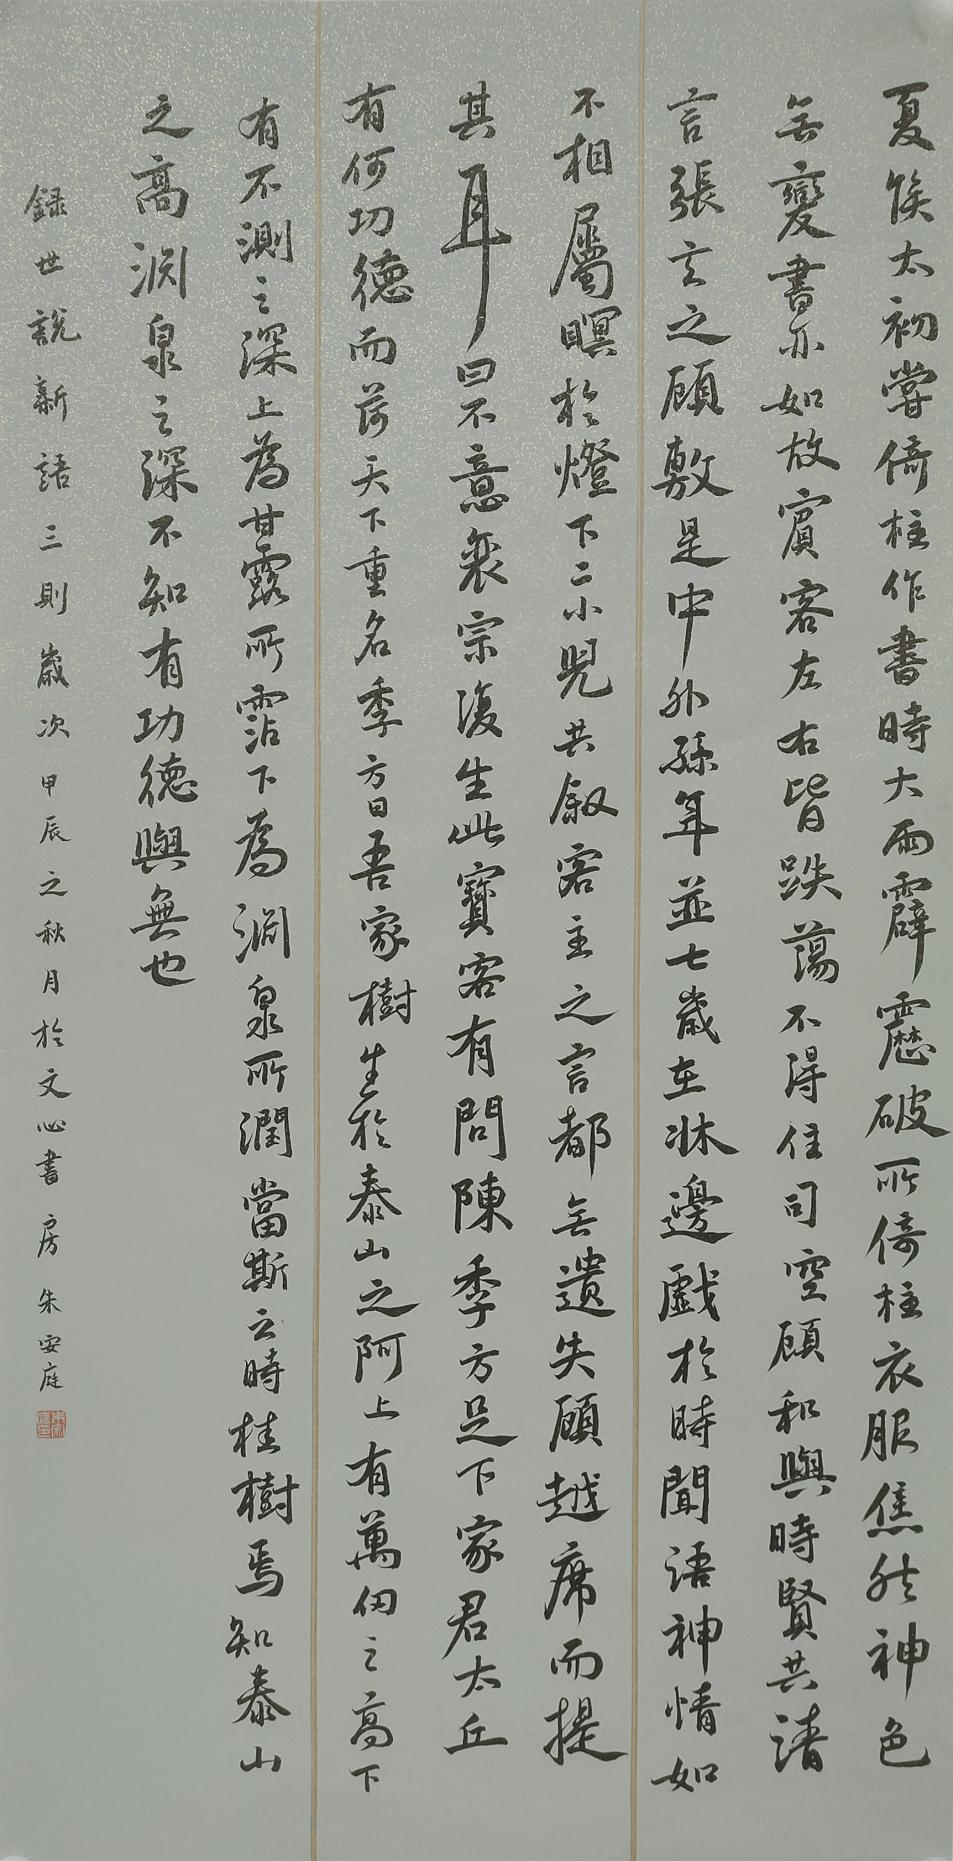 夏侯太初嘗倚柱作書時大雨霹靂破所倚柱衣服焦然神色
無變書亦如故賓客左右皆跌蕩不得住司空顧和與時賢共清
言張玄之顧敷是中外孫年並七歲在牀邊戲於時聞語神情如
不相屬瞑於燈下二小兒共叙客主之言都無遺失顧越席而提
其耳曰不意衰宗復生此寶客有問陳季方足下家君太丘
有何功德而荷天下重名季方曰吾家樹生於泰山之阿上有萬仞之高下
有不測之深上為甘露所霑下為淵泉所潤當斯之時桂樹焉知泰山
之高淵泉之深不知有功德與無也
録世說新語三則歲次甲辰之秋月於文心書房朱安庭